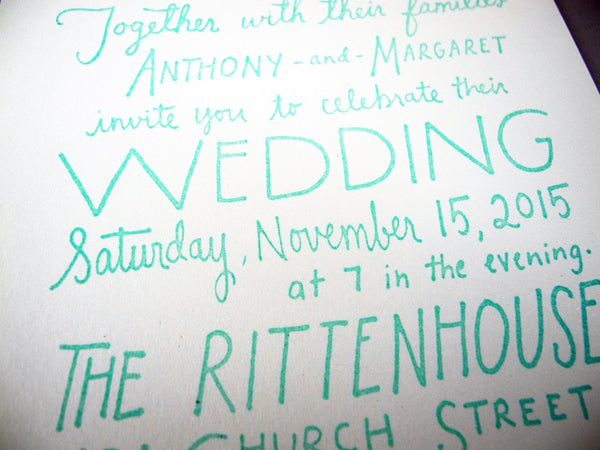 Together with their families
ANTHONY -and- MARGARET
invite you to celebrate their
WEDDING
Saturday, November 15, 2015
at 7 in the evening.
THE RITTENHOUSE
CHURCH STREET